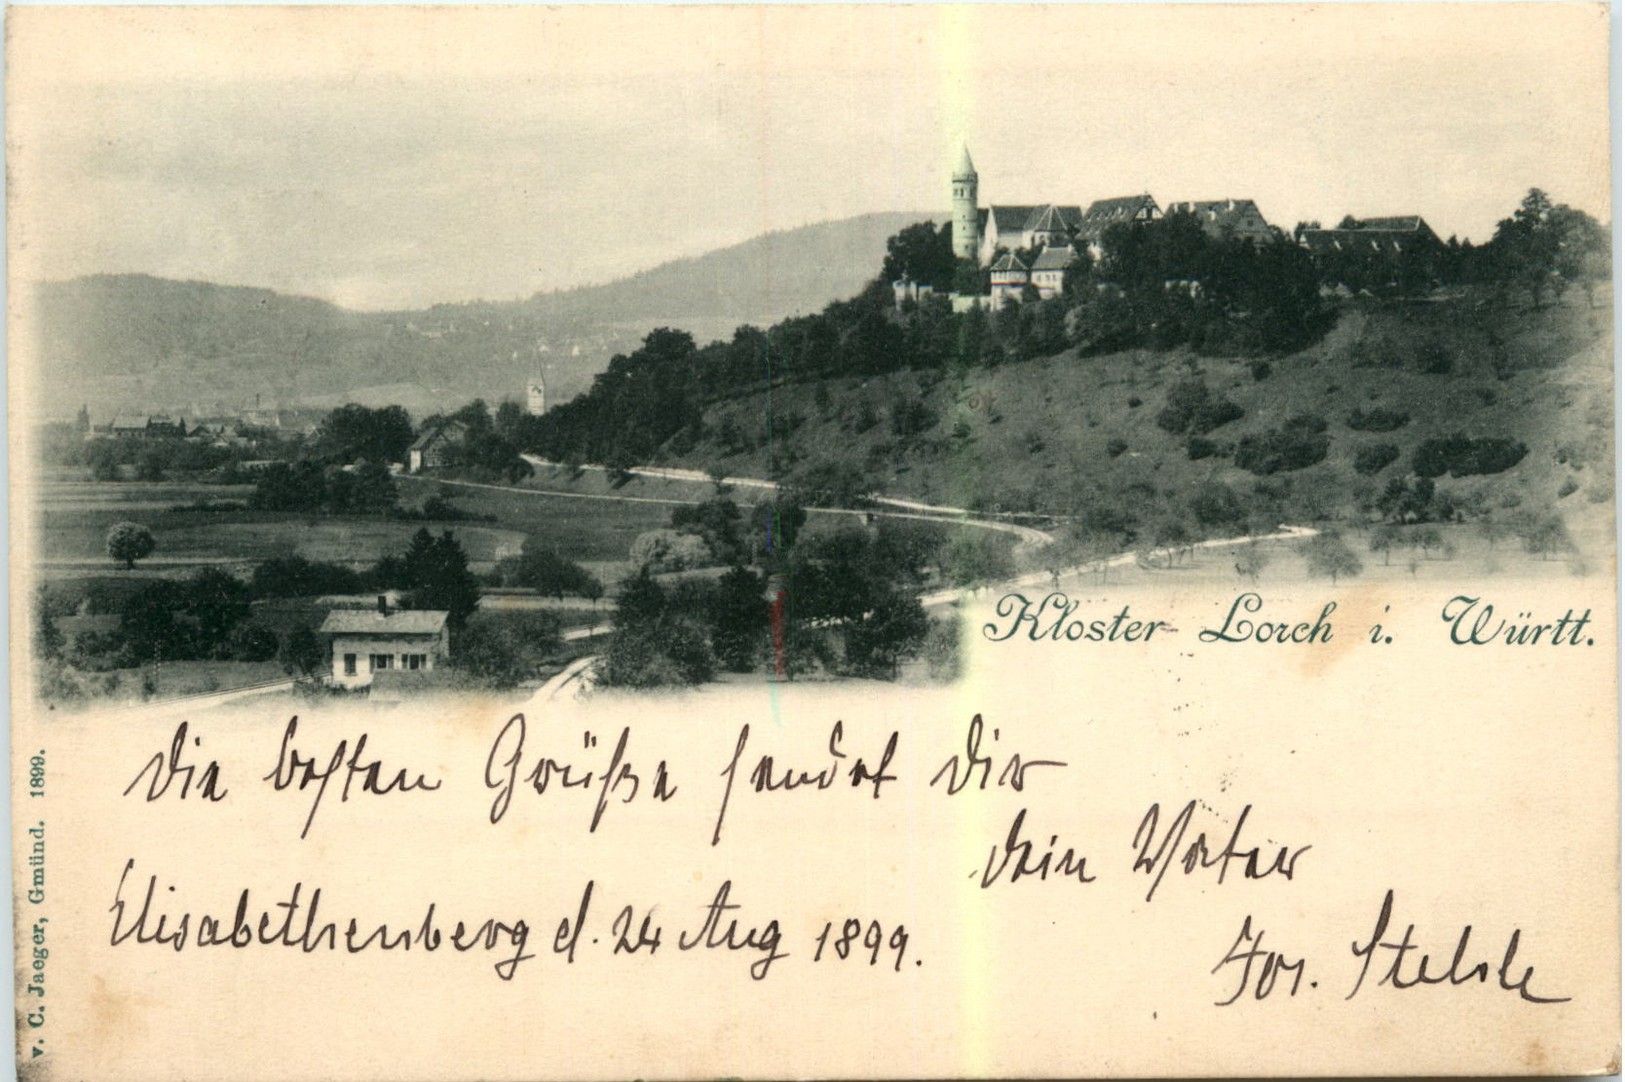 Kloster Lorch i. Württ.
Die besten Grüße sendet Dir
Dein Vater
Elisabethenberg d. 24 Aug 1899.
Jos.
v. C. Jaeger, Gmünd. 1899.